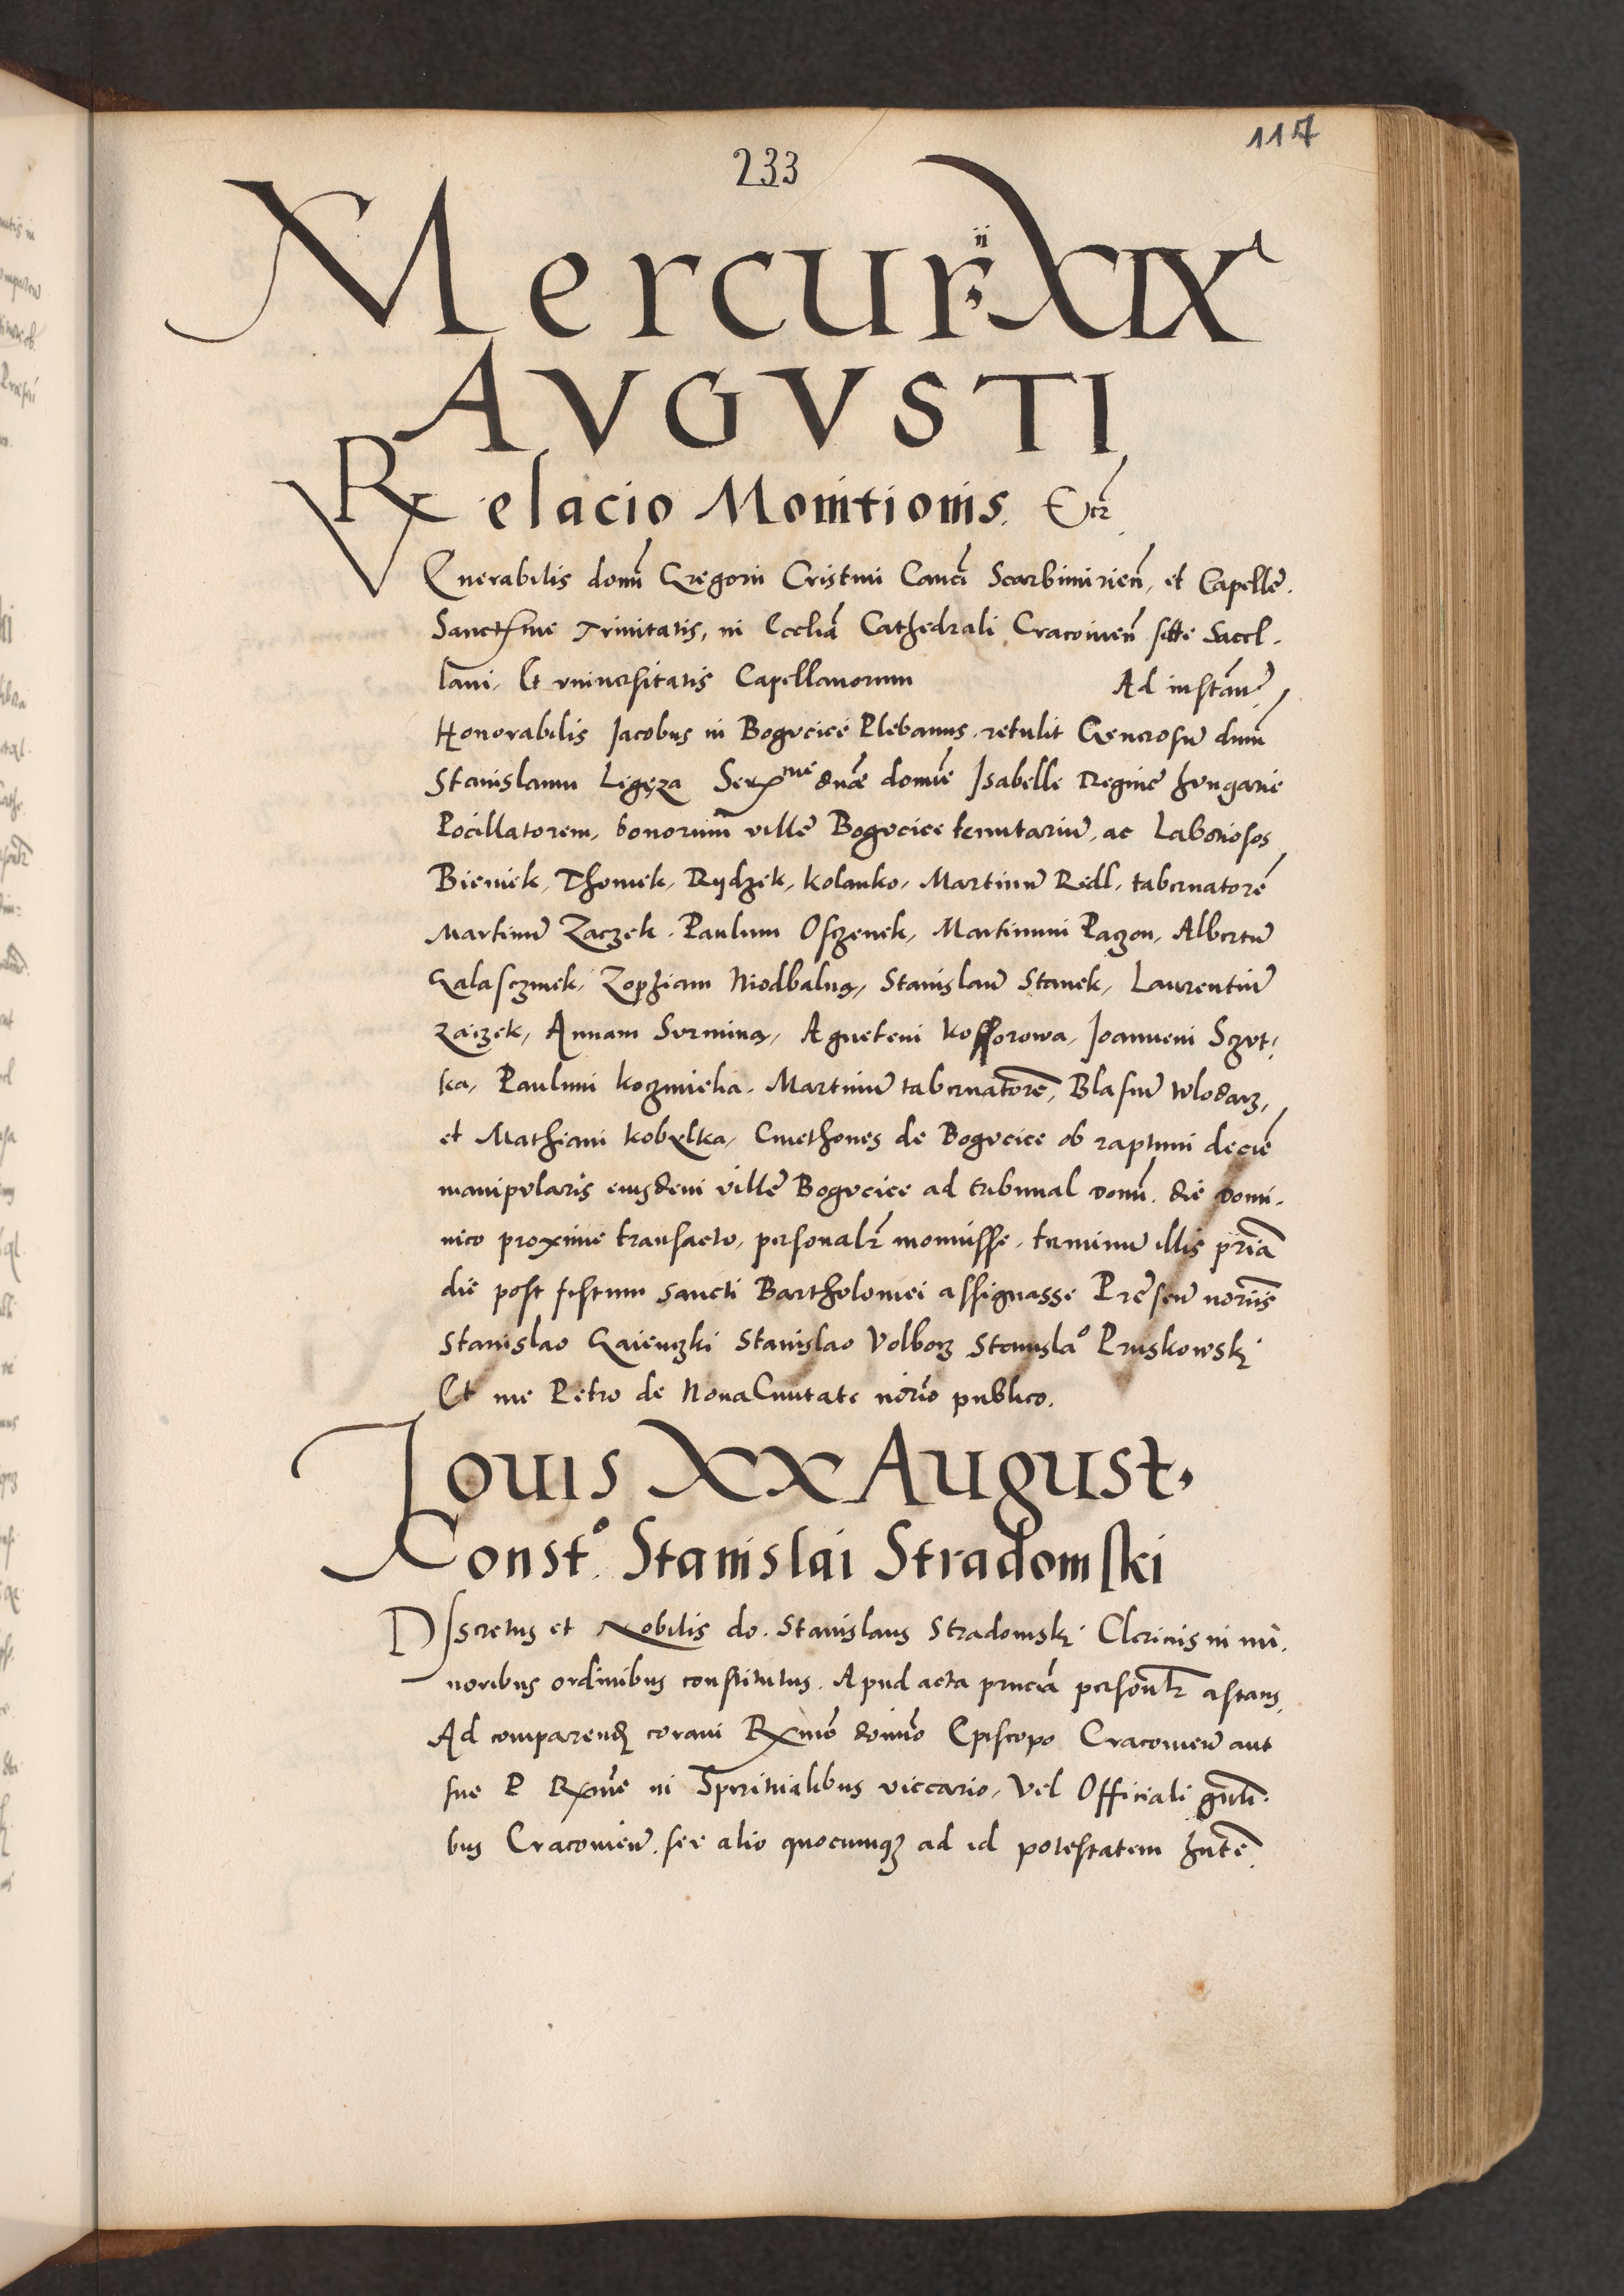 117
233
Mercurii XIX
AVGVSTI
Relacio Monitionis. Etc̄
Venerabilis domī Gregorii Cristini Canci Scarbimirień, et Capelle.
Sanctissime Trinitatis, in Ecclīa Cathedrali Cracovień site Sacel.
lani, Et universitatis Capellanorum Ad instan̄
Honorabilis Jacobus in Bogvcice Plebanus retulit Generosū dnm̄
Stanislaum Ligęza Serme dnæ domīe Isabelle Regine hvngarie
Pocillatorem, bonorum ville Bogvcice tenutariū, ac Laboriosos
Bieniek, Thomek, Rydzek, Kolanko, Martinū Redl, tabernatorē
Martinū Zaczek. Paulum Osczenek, Martinum Paczon, Albertū
Galasczinek, Zophiam Niodbalną, Stanislaū Stanek, Laurentiū
zaiczek, Annam Svrminą, Agnetem Kossorowa, Joannem Sczvt,
ka, Paulum koczmieha. Martinum tabernatorē, Blasiū wlodarz,
et Mathiam kobylka, Cmethones de Bogvcice ob raptum decīe
manipvlaris eiusdem ville Bogvcice ad tribunal domī. die domi.
nico proxime transacto, personalr̄ monuisse, terminū illis prīa
die post festum sancti Bartholomei assignasse Presen̄ noriīs
Stanislao Gaienczki Stanislao Volborz Stanislao Pruskowskį
Et me Petro de Nova Civitate norīo publico.
Iouis XX August,
Consto. Stanislai Stradomski
DIscretus et Nobilis do. Stanislaus Stradomskį Clericus in mi.
noribus ordinibus constitutus. Apud acta pnciā personlr̄ astans,
Ad comparendȝ coram Rxmō domīo Episcopo Cracovień aut
sue P Rxmē in Spiritualibus viccario, Vel Officiali gnlī.
bus Cracovień. sev alio quocumqȝ ad id potestatem hntē.